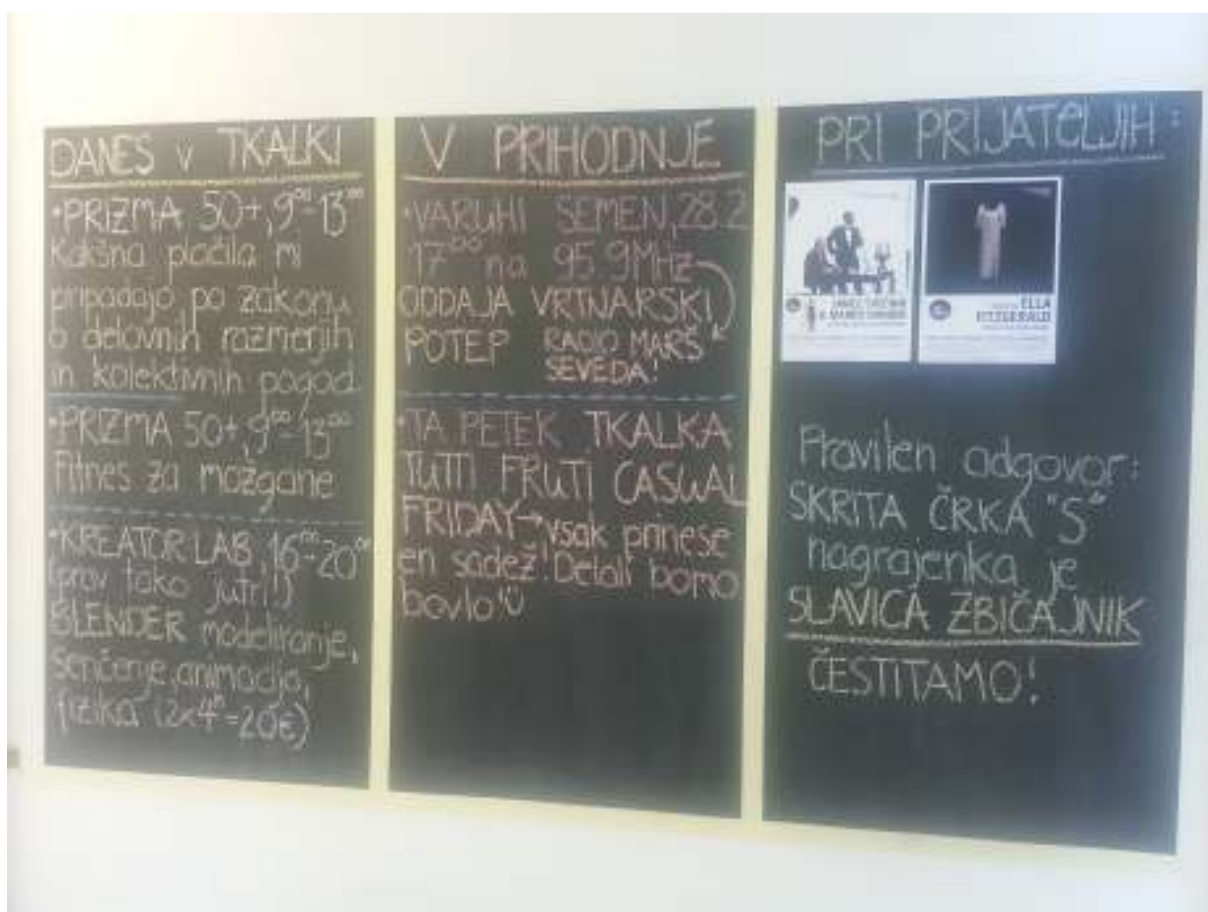 DANES V TKALKI
•PRIZMA 50+, 9⁰⁰-13⁰⁰
Kakšna plačila mi
pripadajo po zakonu
o delovnih razmerjih
in kolektivnih pogod
•PRIZMA 50+, 9⁰⁰-13⁰⁰
Fitnes za možgane
•KREATOR LAB, 16⁰⁰-20⁰⁰
(prav tako jutri!)
BLENDER modeliranje,
senčenje, animacija,
fizika (2x4ʰ=20€)
V PRIHODNJE
•VARUHI SEMEN, 28.2
17⁰⁰ na 95.9MHz
ODDAJA VRTNARSKI
POTEP RADIO MARŠ
SEVEDA!
•TA PETEK TKALKA
TUTTI FRUTI CASUAL
FRIDAY→vsak prinese
en sadež! Delali bomo
bovlo!
PRI PRIJATELJIH:
ELLA
FITZGERALD
Pravilen odgovor:
SKRITA ČRKA "S"
nagrajenka je
SLAVICA ZBIČAJNIK
ČESTITAMO!